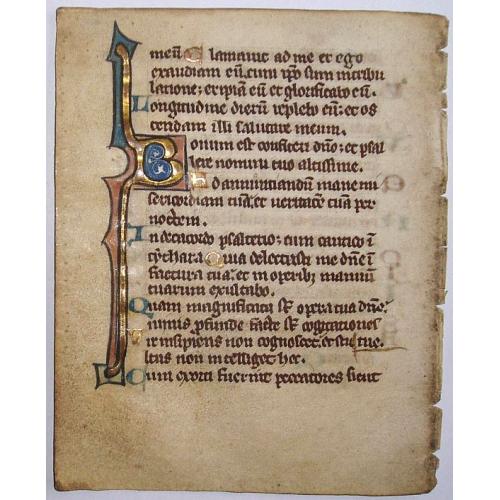 meū Clamauit ad me et ego
exaudiam eū, cum ip̄o sum in tribu
latione; eripiā eū et glorificabo eū.
Longitudine dierū replebo eū; et os
tendam illi salutare meum.
Bonum est confiteri dn̄o; et psal
lere nomini tuo altissime.
Ad annuntiandū mane mi
sericordiam tuā; et veritatē tuā per
noctem.
In decacordo psalterio; cum cantico ī
cythara Quia delectasti me dn̄e ī
factura tua; et in operibȝ manuū
tuarum exultabo.
Quam magnificata sūt opera tua dn̄e;
nimis p̱funde facte sūt cogitationes
Vir insipiens non cognoscet; et stul
tus non intelliget hec.
Cum exorti fuerint peccatores sicut